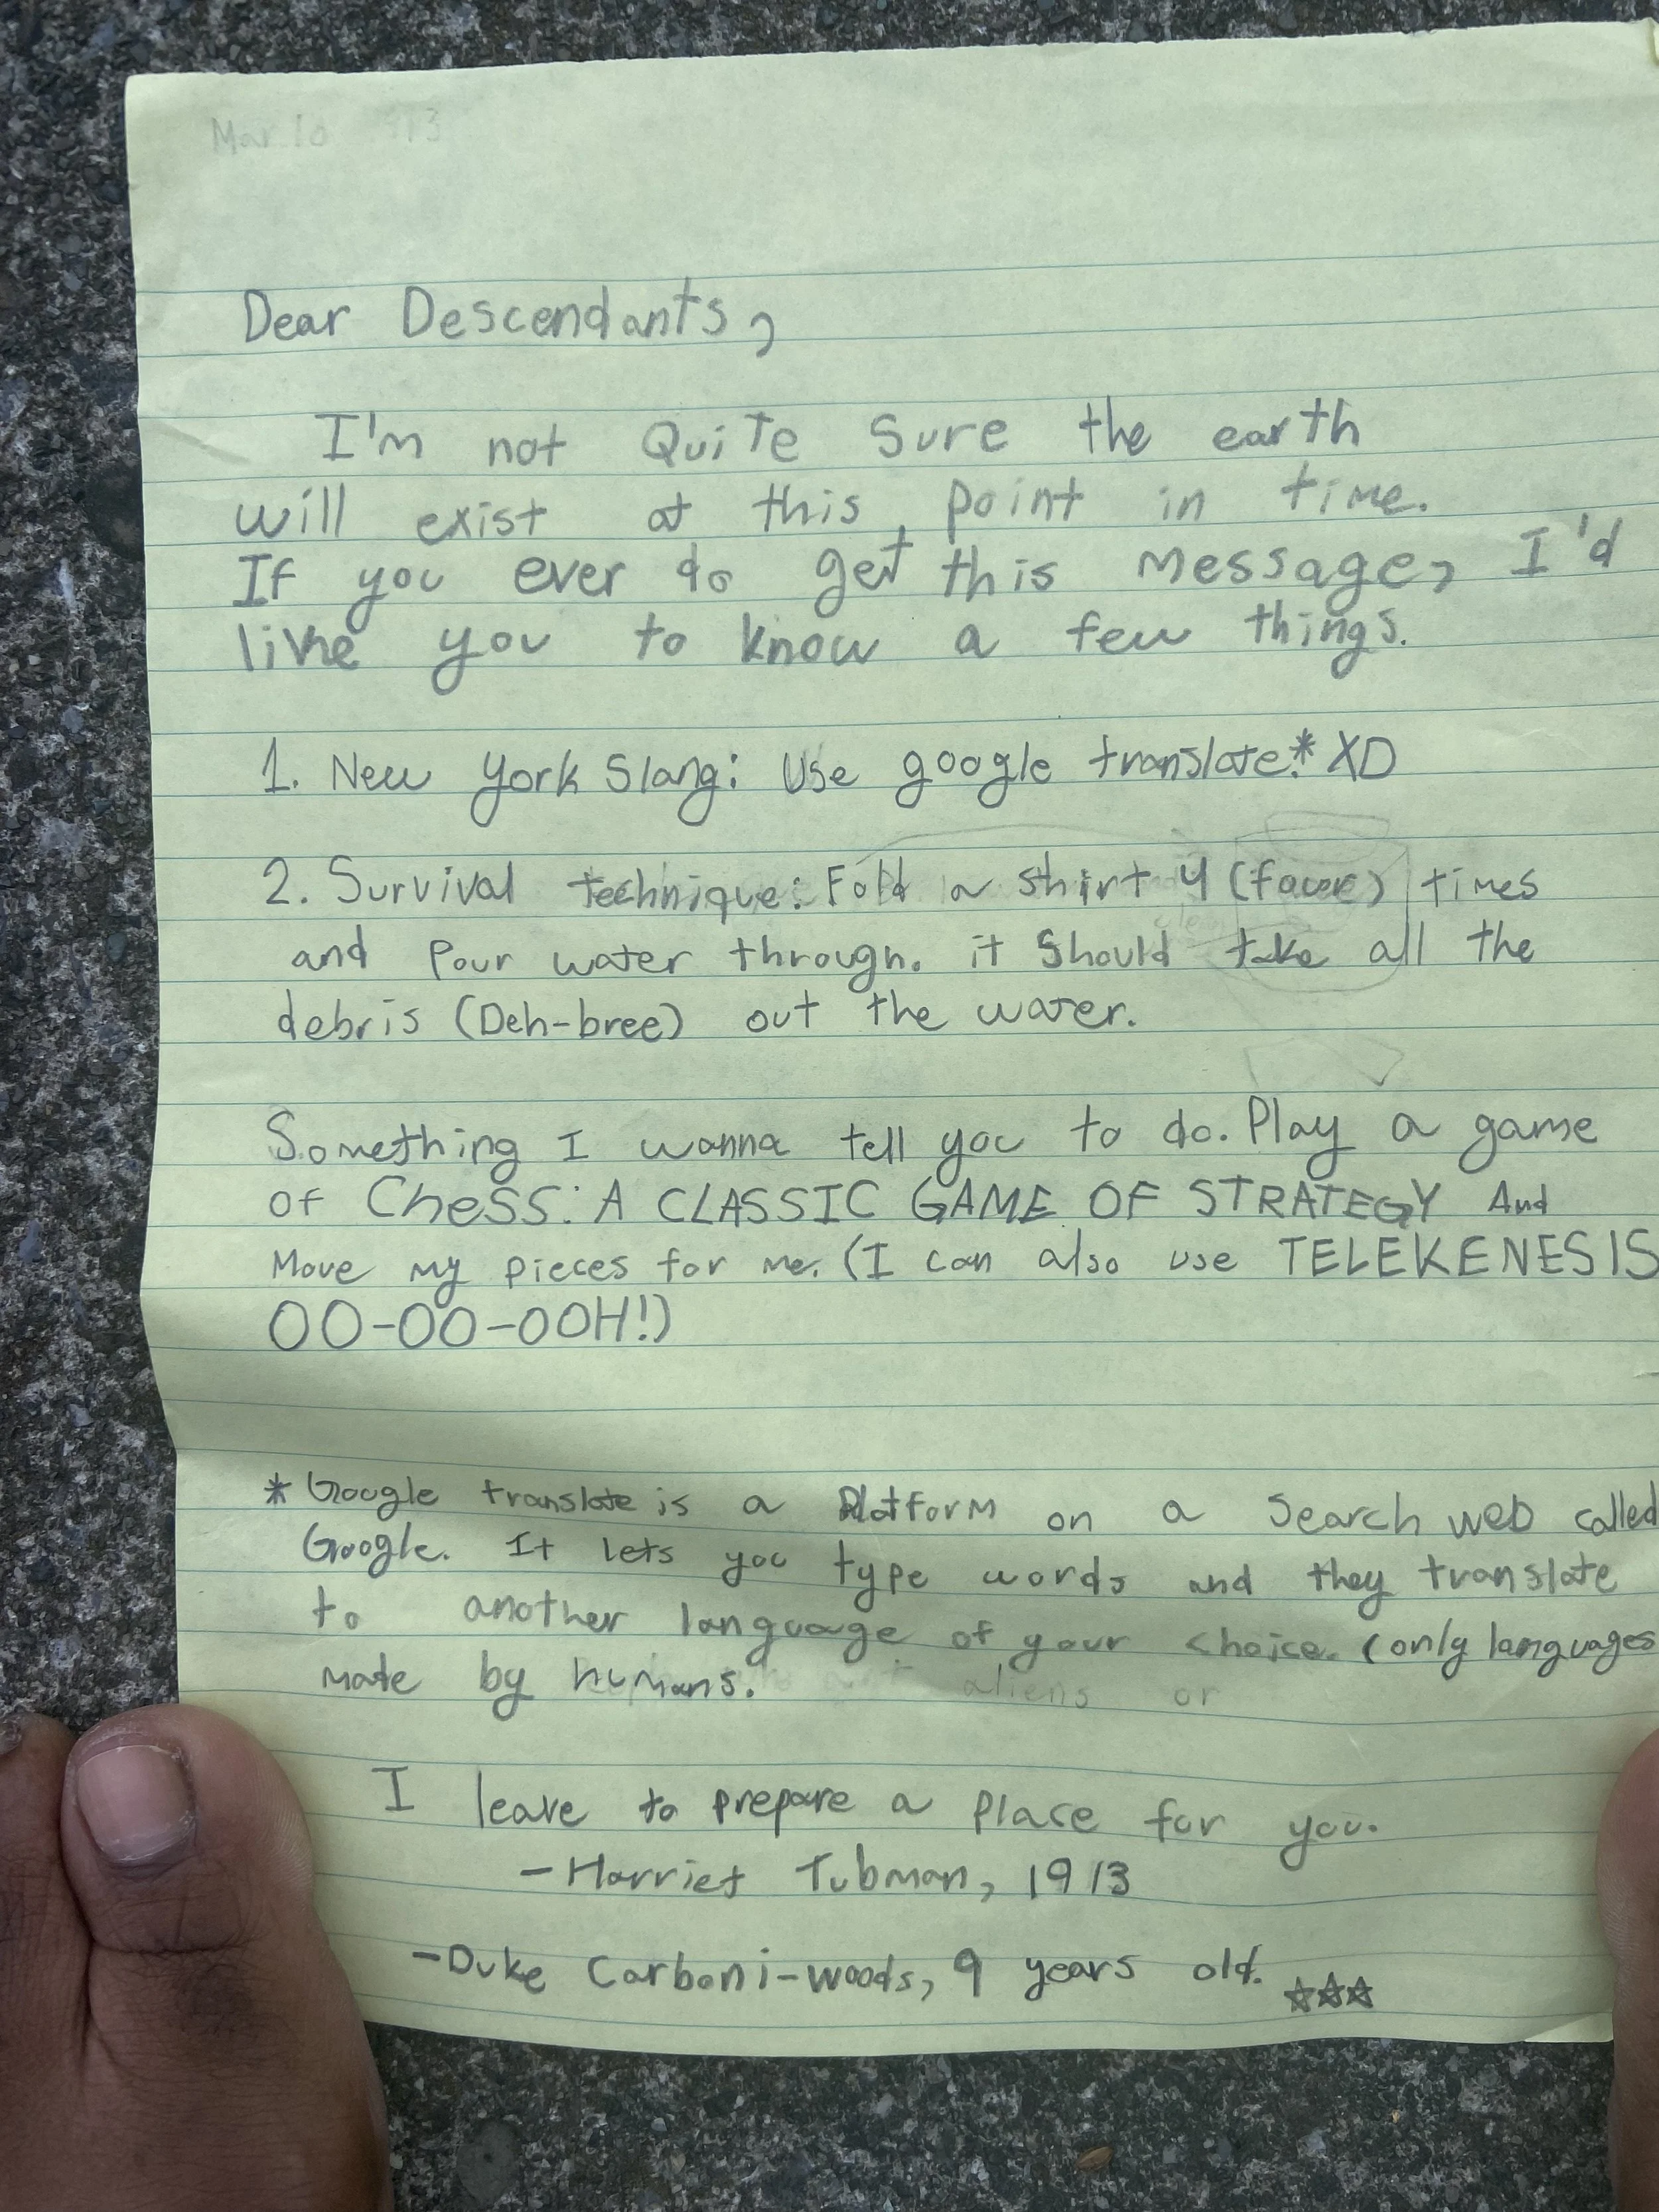 Mar 10 913
Dear Descendants,
I'm not Quite Sure the earth
will exist at this point in time.
If you ever do get this message, I'd
like you to know a few things.
1. New York Slang: Use google translate.* XD
2. Survival technique: Fold a shirt 4 (four) times
and Pour water through. it Should take all the
debris (Deh-bree) out the water.
Something I wanna tell you to do. Play a game
of Chess: A CLASSIC GAME OF STRATEGY And
Move my pieces for me. (I can also use TELEKENESIS
OO-OO-OOH!)
* Google translate is a Platform on a Search web called
Google. It lets you type words and they translate
to another language of your choice. (only languages
made by humans. aliens or
I leave to prepare a place for you.
-Harriet Tubman, 1913
-Duke Carboni-woods, 9 years old. ☆☆☆